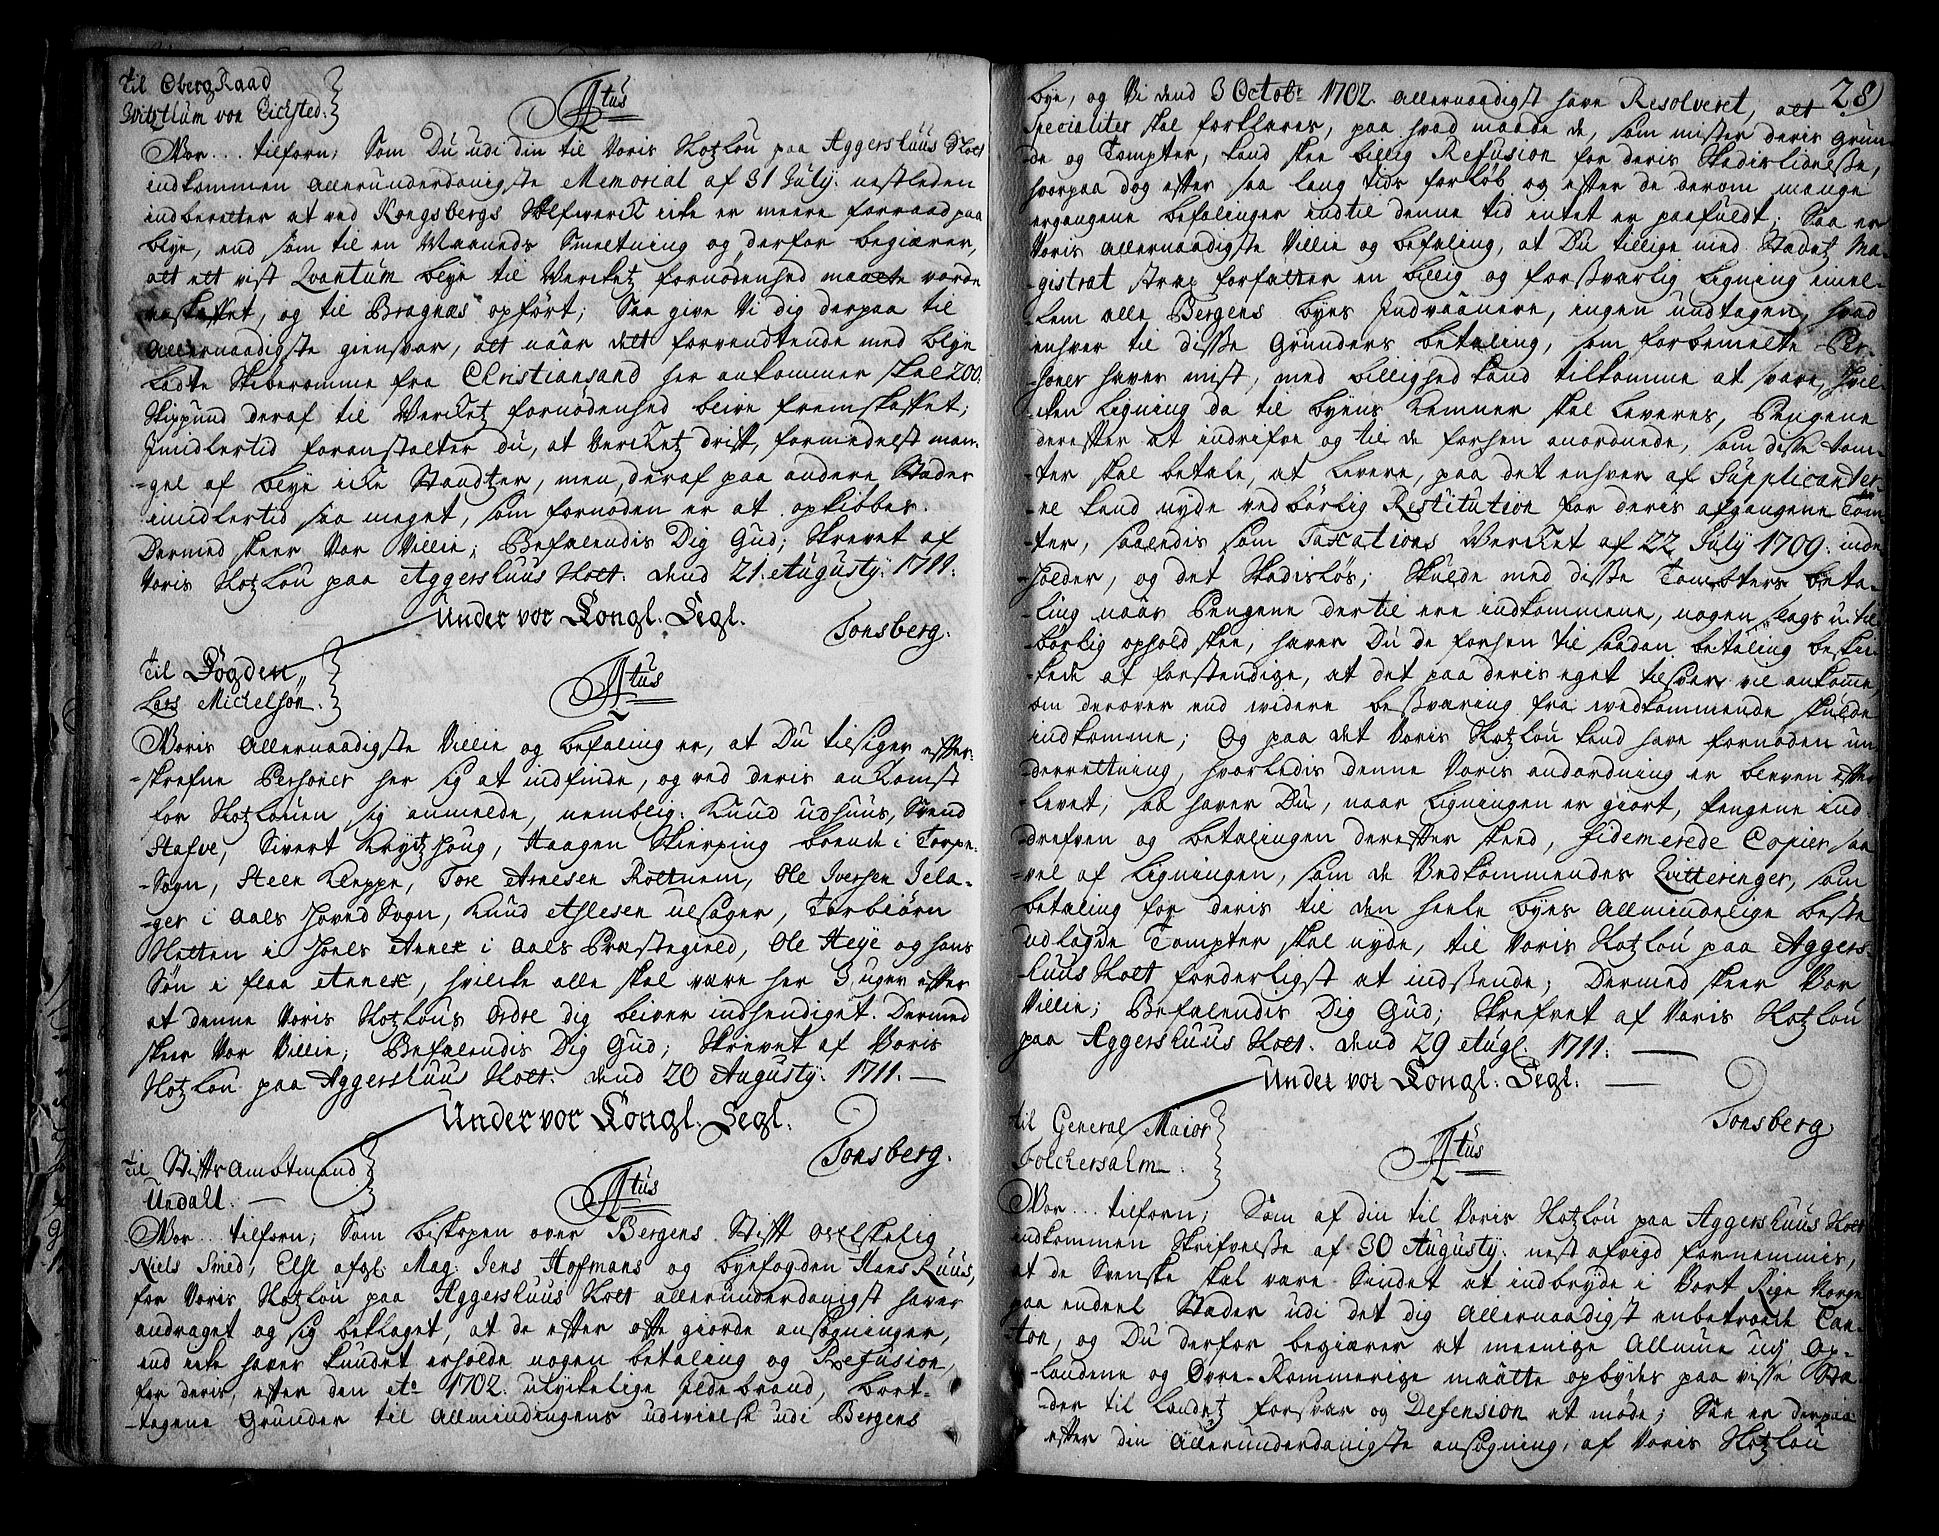 Til ObergRaad
Vitzthum von Eichsted.
Atus
Vor... tilforn; Som Du udi din til Voris Slotzlou paa Aggershuus Slott
indkommen allerunderdanigste Memorial af 31 July nestleden
indberetter at ved Kongsbergs Sølfwerck icke er meere forraad paa
blye, end som til en Maaneds Smeltning og derfor begiærer,
att ett vist Qvantum blye til Wercketz fornødenhed maatte vorde
anskaffet, og til Bragnæs opført; Saa give Vi dig derpaa til
allernaadigste giensvar, att naar dett forvendtende med blye
ladte Skiberomme fra Christiansand her ankommer skal 200
Skippund deraf til Wercketz fornødenhed blive fremskaffet;
Imidlertid foranstalter du, at Verketz drift, formedelst man-
-gel af blye icke Standtzer, men deraf paa andere Stæder
imidlertid saa meget, som fornøden er at opkibbes.
Dermed skeer Vor Villie; Befalendis Dig Gud; Skrevet af
Voris Slotzlou paa Aggershuus Slott. dend 21. Augusty. 1711.
Under vor Kongl. Segl.
Tonsberg.
Til Fogden
Lars Michelsøn.
Atus
Voris Allernaadigste Villie og befaling er, at Du tilsiger efter-
-skrefne Personer her sig at indfinde, og ved deris ankomst
for Slotzlouen sig anmelde, nemblig: Knud udhuus, Svend
Stafve, Sivert Krytzhoug, Haagen Skierping boende i Torpe-
-Sogn, Steen Kleppe, Tore Arnesen Roltnem, Ole Iversen Jela-
-ger i Aals Hoved Sogn, Knud Ahlesen ulsager, Torbiørn
Hotten i Hols Annex i Aals Præstegield, Ole Heye og hans
Søn i flaa Annex, hvilcke alle skal være her 3 uger efter
at denne Voris Slotzlous Ordre dig blifver indhendiget. Dermed
skeer Vor Villie; Befalendis Dig Gud; Skrevet af Voris
Slotzlou paa Aggershuus Slott. dend 20 Augusty. 1711.
Under vor Kongl. Segl.
Tonsberg.
Til Stiftsambtmand
Undall.
Atus
Vor... tilforn; Som biskopen over Bergens Stift
Niels Smed, Else afgl. Mag: Jens Hofmans og byefogden Hans Ruus,
for Voris Slotzlou paa Aggershuus Slott allerunderdanigst haver
andraget og sig beklaget, at de efter ofte giorde ansøgninger,
end icke haver kundet erholde nogen betaling og Refusion,
for deris, efter den Ao 1702. ulykelige Ildebrand, bort-
-tagene Grunder til Allmindingens udvielse udi Bergens
28
bye, og Vi dend 3 Octobr 1702. allernaadigst have Resolveret, att
Specialiter skal forklares, paa hvad maade de, som mister deris Grun-
-de og Tompter, kand skee billig Refusion for deris Skadislidnelse,
hvorpaa dog efter saa lang tids forløb og efter de derom mange
ergangene befalinger indtil denne tid intet er paafuldt; Saa er
Voris allernaadigste Villie og befaling, at Du tillige med Stadetz Ma-
-gistrat strax forfatter en billig og forsvarlig Ligning imel-
-lem alle Bergens byes Indvaanere, ingen undtagen, hvad
enhver til disse Grunders betaling, som forbemelte Per-
-soner haver mist, med billighed kand tilkomme at svare, hvil-
-cken Ligning da til byens Kemner skal Leveres, Pengene
derefter at indrifve og til de forhen anordnede, som disse Tom-
-ter skal betale, at Levere, paa det enhver af Supplicanter-
-ne kand nyde vedbørlig Restitution for deris afgangene Tom-
-ter, saaledis som Taxations Wercket af 22 July 1709. inde-
-holder, og det Skadisløs; Skulde med disse Tomters beta-
-ling naar Pengene dertil ere indkommene, nogen slags u-til-
-børlig ophold skee, haver Du de forhen til saadan betaling beski-
-kede at forstendige, at det paa deris eget tilsvar vil ankomme,
om derover end widere besværing fra wedkommende skulde
indkomme; Og paa det Voris Slotzlou kand have fornøden un-
-derrettning, hvorledis denne Voris andordning er bleven efter-
-levet; saa haver Du, naar Ligningen er giort, Pengene ind-
-drefven og betalingen derefter skeed, fidemerede Copier saa-
-vel af Ligningen, som de Vedkommendes Qvitteringer, som
betaling for deris til den heele byes Allmindelige beste
udlagde Tompter skal nyde, til Voris Slotzlou paa Aggers-
-huus Slott forderligst at indsende; Dermed skeer Vor
Villie; Befalendis Dig Gud; Skrefvet af Voris Slotzlou
paa Aggershuus Slott. dend 29 Augl. 1711.
Under vor Kongl. Segl.
Tonsberg
til General Maior
Folckersalm
Atus
Vor... tilforn; Som af din til Voris Slotzlou paa Aggershuus Slott
indkommen Skrifvelse af 30 Augusty. nest afvigt fornemmis,
at de Svenske skal være Sindet at indbryde i Vort Rige Norge
paa endeel Stæder udi det dig Allernaadigst anbetroede Can-
-ton, og Du derfor begiærer at meenige Allmue udj Op-
-landene og Øvre-Rommerige maatte opbydes paa visse Stæ-
-der til Landetz forsvar og Defension at møde; Saa er derpaa
efter din Allerunderdanigste ansøgning, af Voris Slotzlou